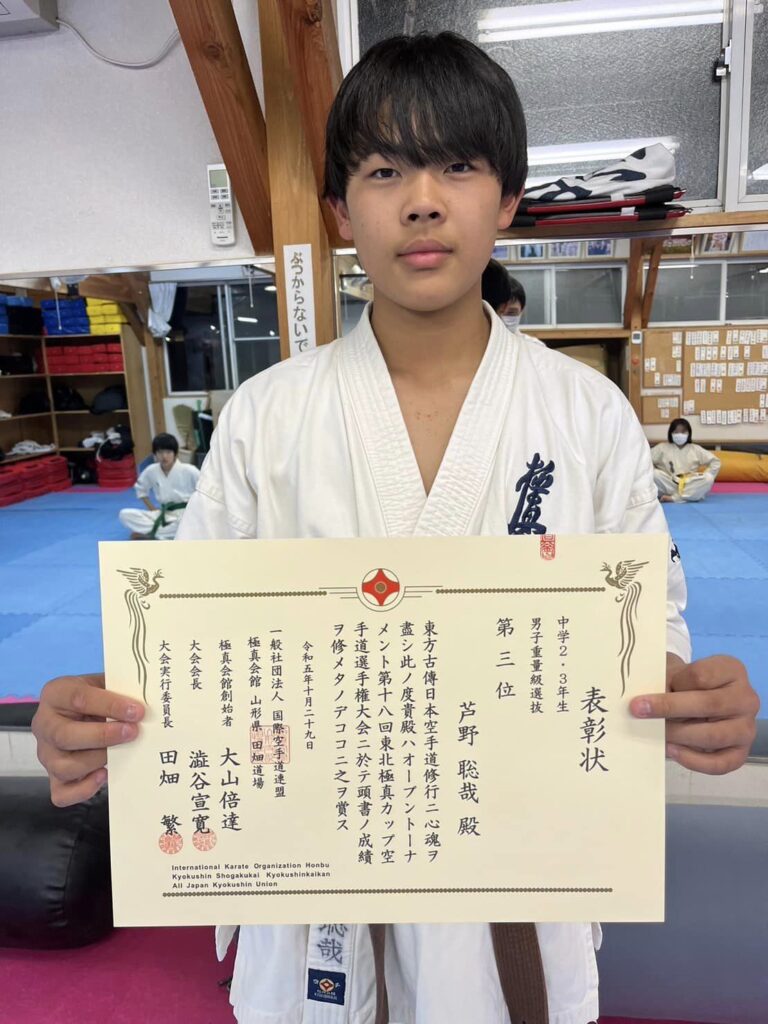 ぶつからないで
極真
表彰状
中学2・3年生
男子重量級選抜
第三位
芦野 聡哉 殿
東方古傳日本空手道修行ニ心魂ヲ
盡シ此ノ度貴殿ハオープントーナ
メント第十八回東北極真カップ空
手道選手権大会ニ於テ頭書ノ成績
ヲ修メタノデココニ之ヲ賞ス
令和五年十月二十九日
一般社団法人 国際空手道連盟
極真会館 山形県 田畑道場
極真会館創始者 大山倍達
大会会長 澁谷宣寛
大会実行委員長 田畑 繁
International Karate Organization Honbu
Kyokushin Shogakukai Kyokushinkaikan
All Japan Kyokushin Union
聡哉